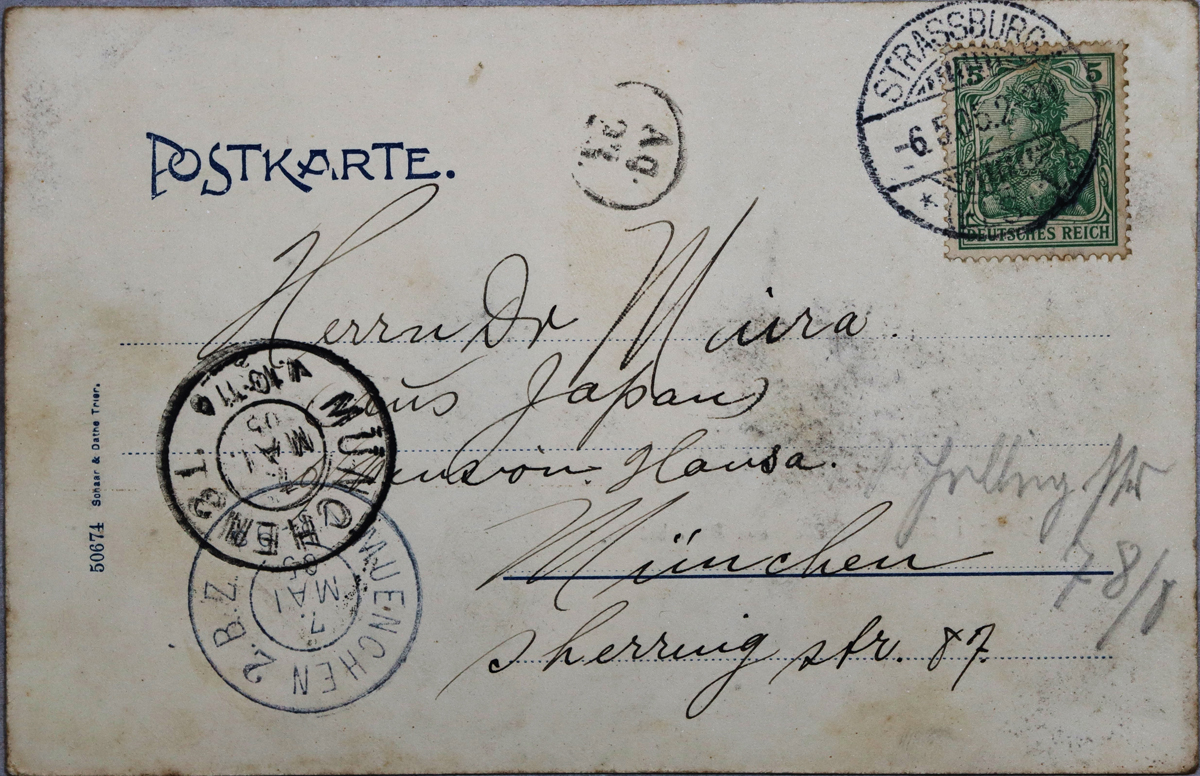 POSTKARTE.
STRASSBURG
-6.5
5
5
DEUTSCHES REICH
Herrn Dr Miura
aus Japan
Pension Hansa.
München
sherring str. 87.
78/I
MÜNCHEN 31.
7 MAI 05
V.10-11
MUENCHEN 2.B.Z.
7. MAI
50674 Schaar & Dathe Trier.